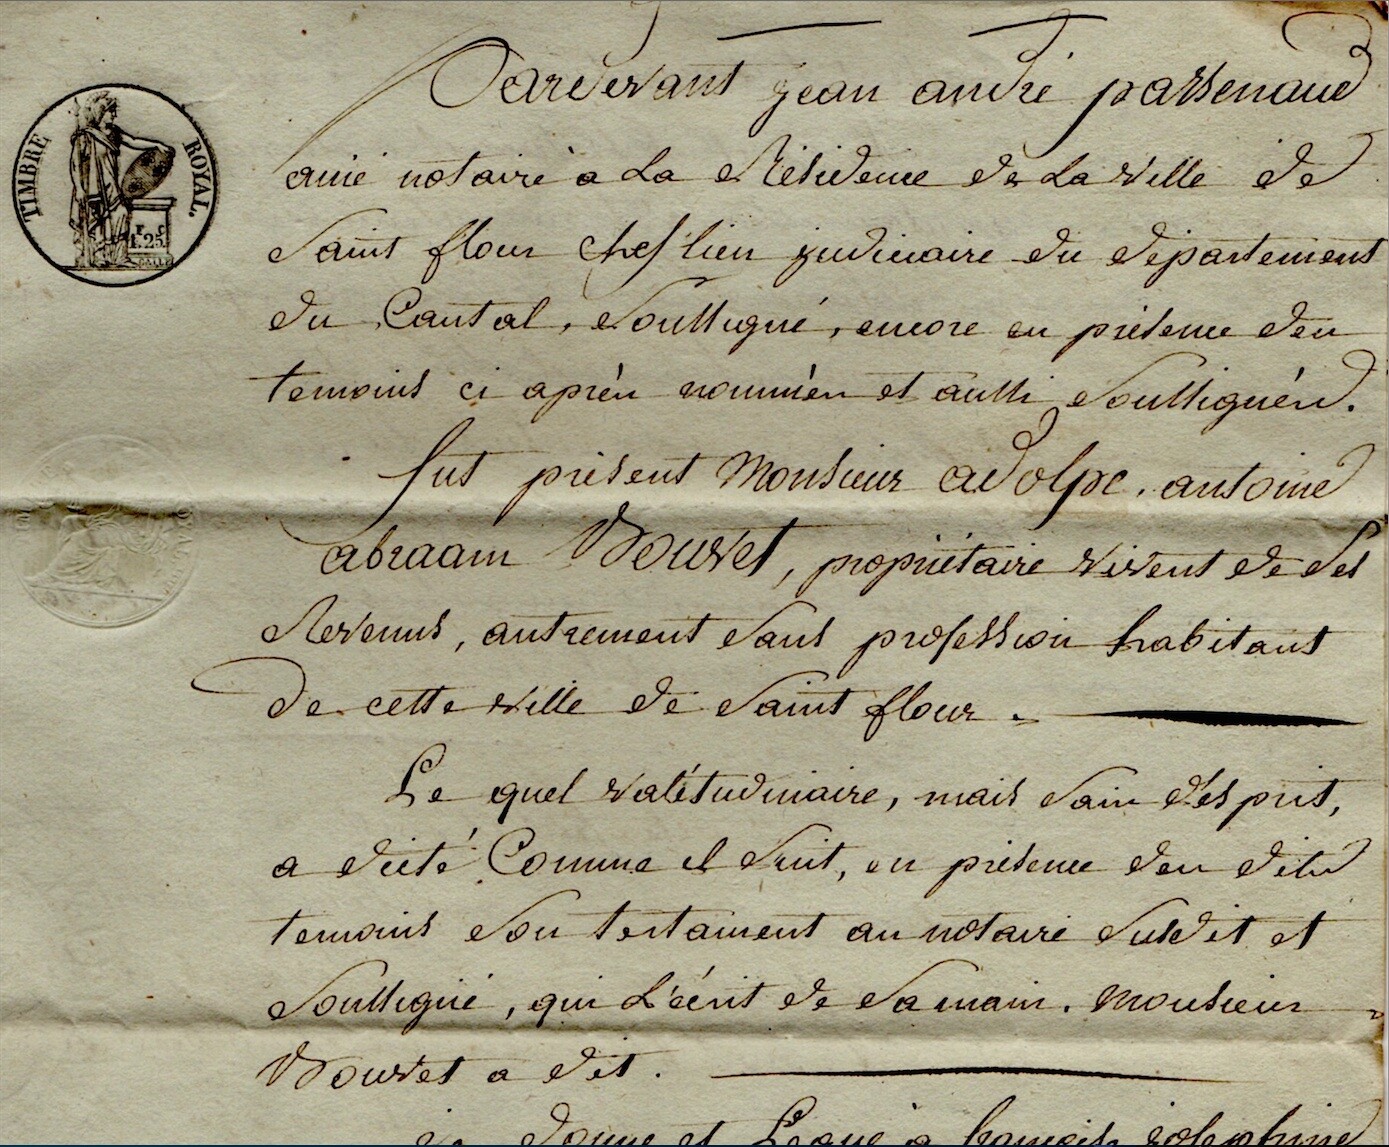 TIMBRE ROYAL.
F. C.
1.25
Pardevant jean andré passenaud
ainé notaire a la Résidence de la ville de
Saint flour chef lieu judiciaire du département
du Cantal, soussigné, encore en présence des
temoins ci après nommés et aussi soussignés.
fut présent Monsieur adolpe, antoine
abraam Bouvet, propriétaire vivent de ses
Revenus, autrement sans profession habitant
de cette ville de saint flour.
Le quel valétudinaire, mais sain d'esprit,
a dicté Comme il suit, en présence des dits
temoins son testament au notaire susdit et
soussigné, qui l'écrit de sa main. Monsieur
Bouvet a dit.
je donne et Legue à josephine